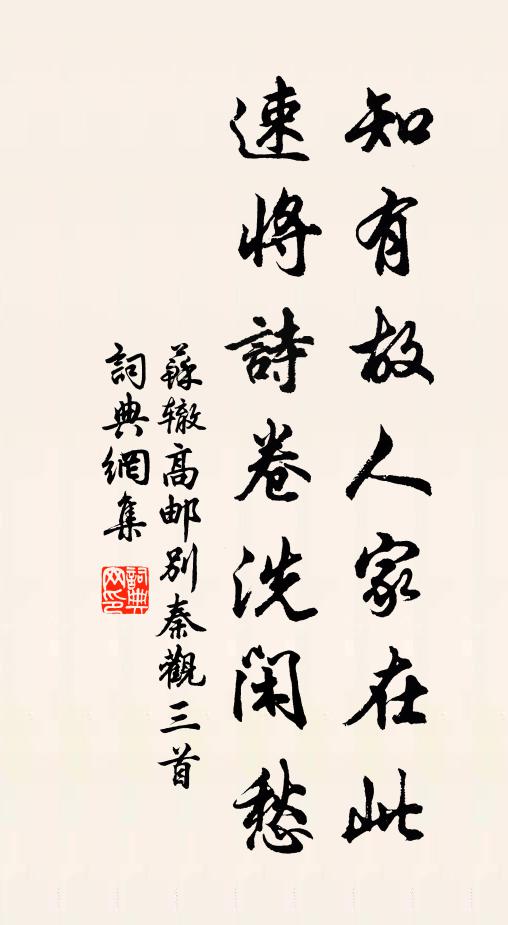 知有故人家在此
速將詩卷洗閑愁
蘇辙高邮别秦觀三首
詞典網集
詞典网印